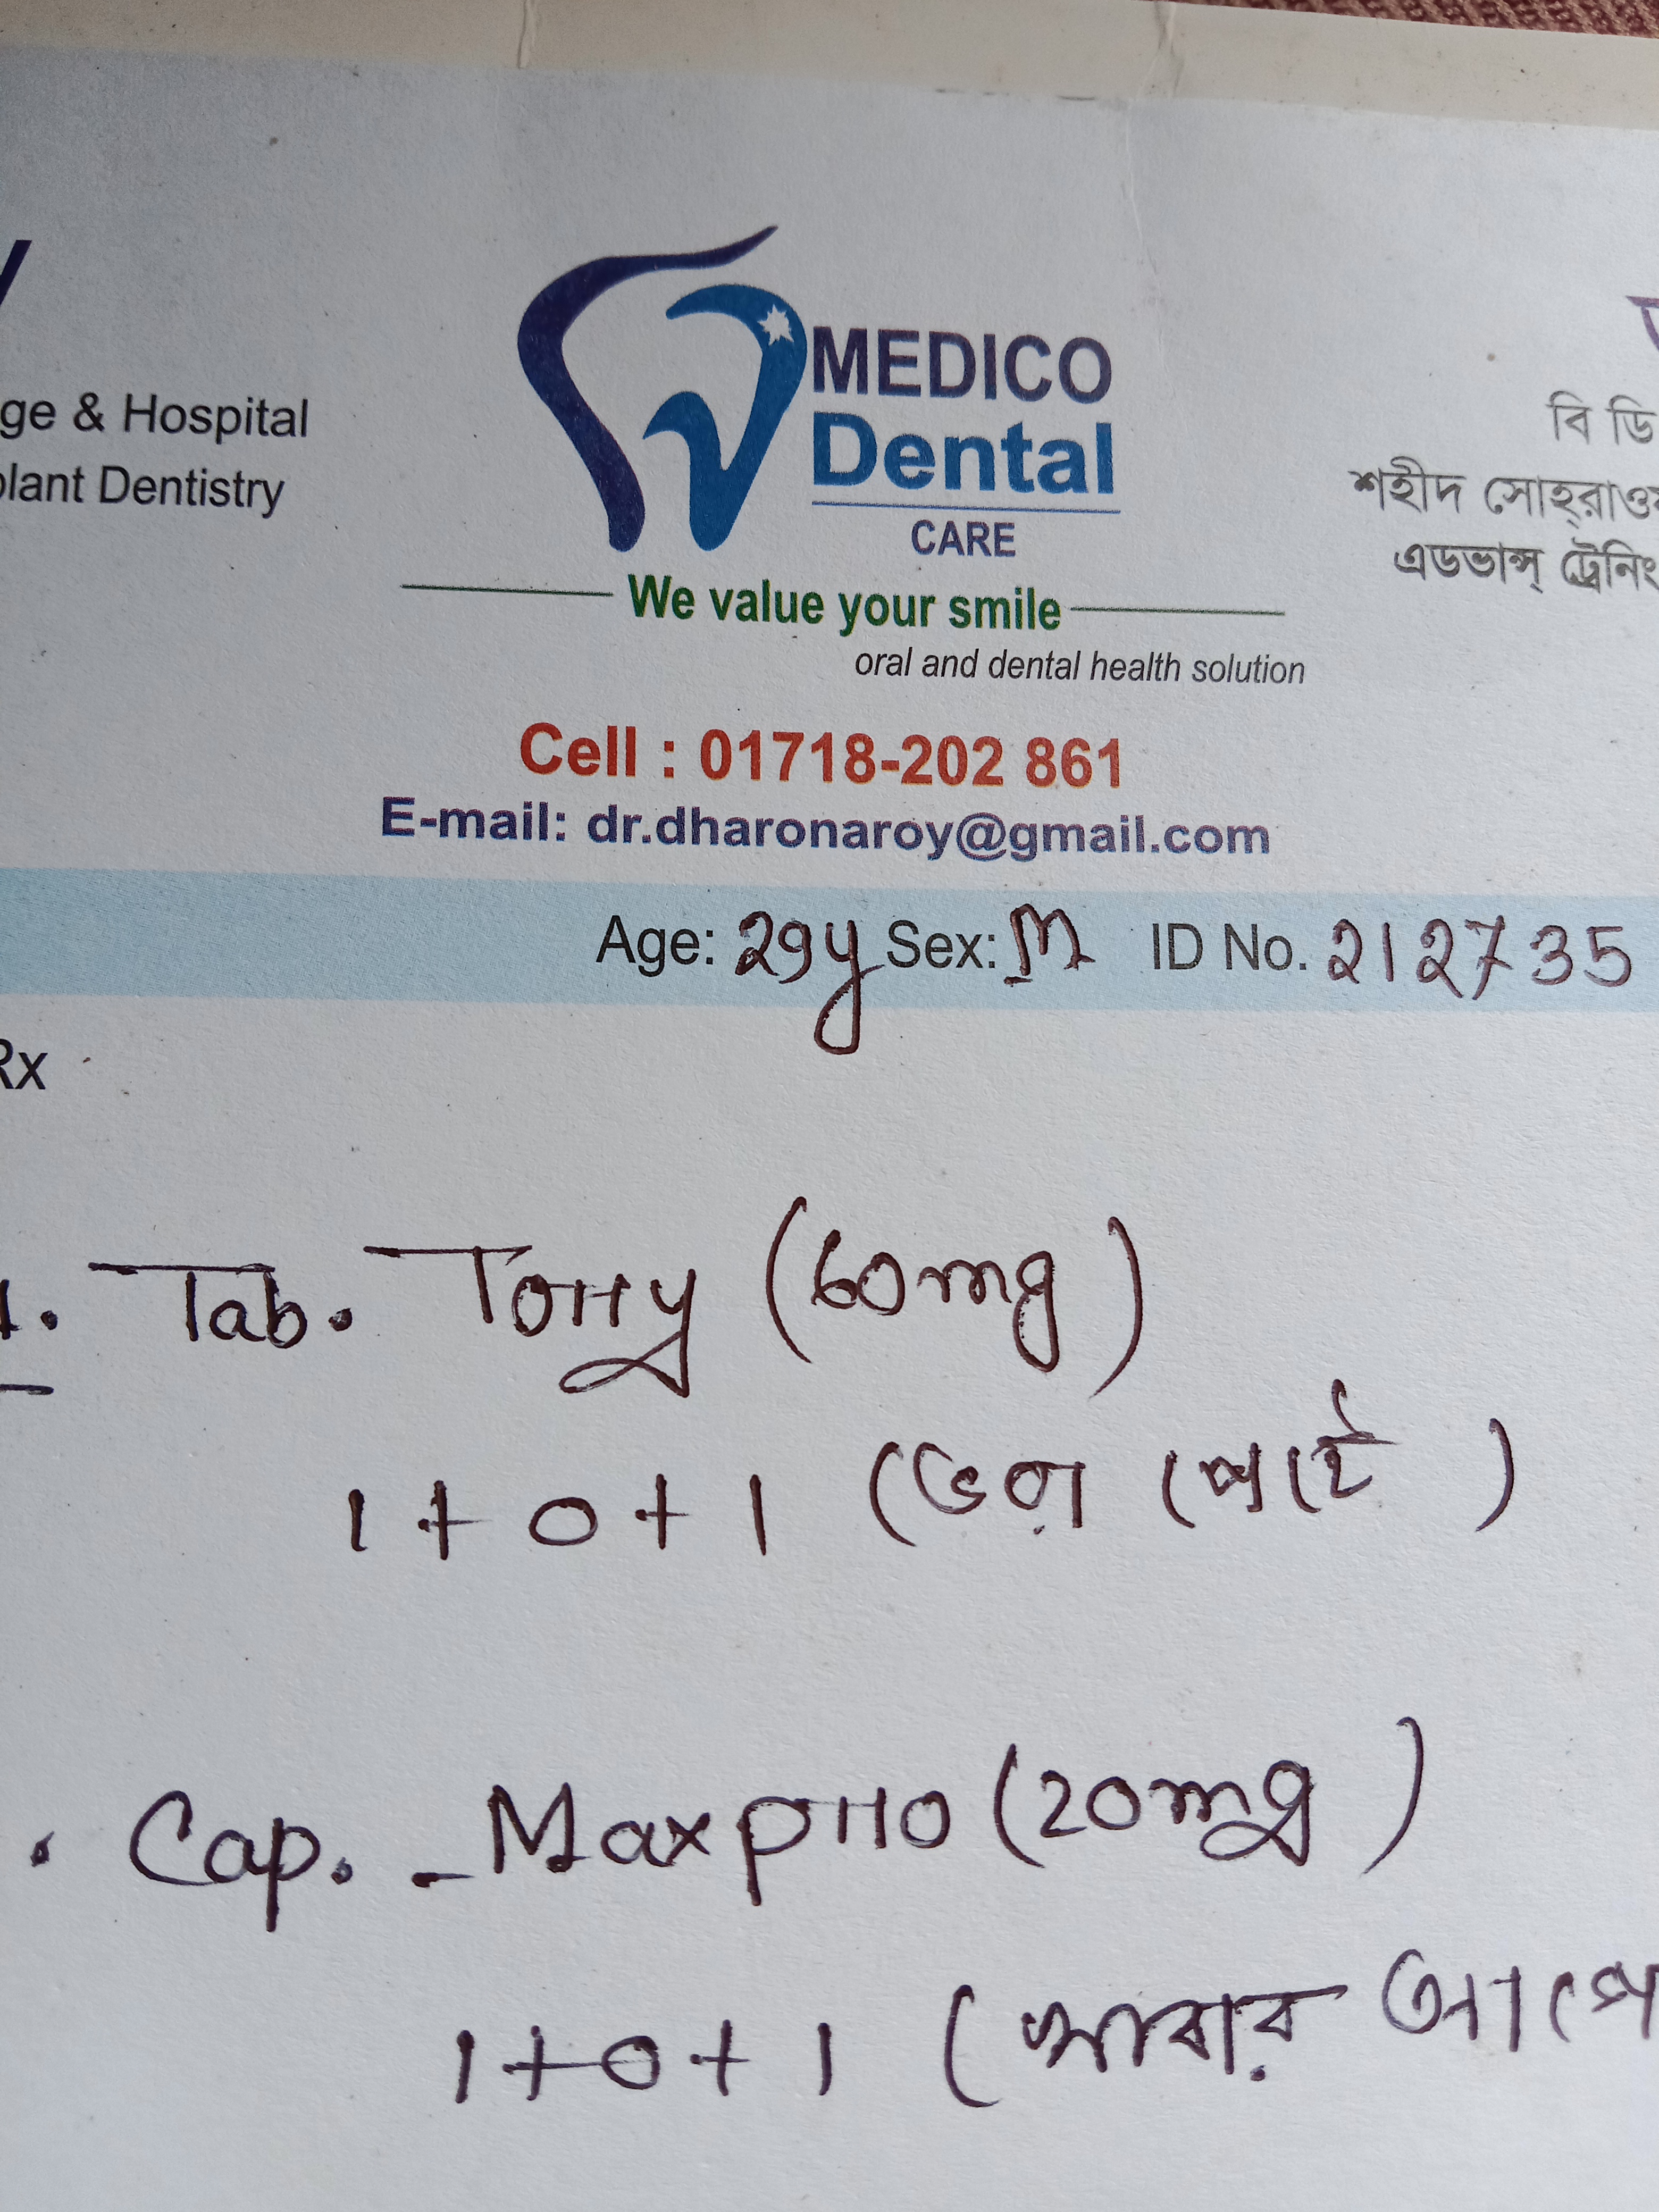 ge & Hospital
plant Dentistry
MEDICO
Dental
CARE
We value your smile
oral and dental health solution
Cell : 01718-202 861
E-mail: dr.dharonaroy@gmail.com
বি ডি
শহীদ সোহ্‌রাওয়
এডভান্স্ ট্রেনিং
Age: 29y Sex: M ID No. 212735
Rx
1. Tab. Torry (60mg)
1+0+1 (ভরা পেটে)
. Cap. Maxpro (20mg)
1+0+1 (খাবার আগে